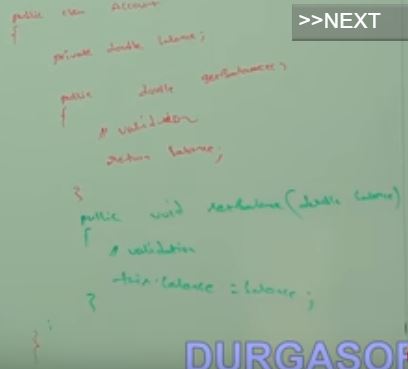 >>NEXT
public class Account
{
private double balance;
public double getBalance()
{
// validation
return balance;
}
public void setBalance(double balance)
{
// validation
this.balance = balance;
}
}
DURGASOF